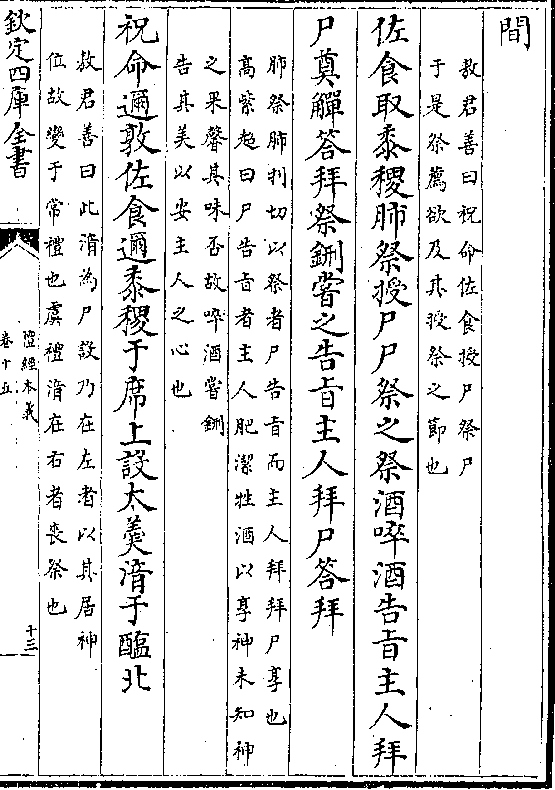 間
敖君善曰祝命佐食授尸祭尸
于是祭薦欲及其授祭之節也
佐食取黍稷肺祭授尸尸祭之祭酒啐酒告旨主人拜
尸奠觶答拜祭鉶嘗之告旨主人拜尸答拜
肺祭肺刌切以祭者尸告旨而主人拜拜尸享也
高紫超曰尸告旨者主人肥潔牲酒以享神未知神
之果馨其味否故啐酒嘗鉶
告其美以安主人之心也
祝命邇敦佐食邇黍稷于席上設太羹湇于醢北
敖君善曰此湇為尸設乃在左者以其居神
位故變于常禮也虞禮湇在右者喪祭也
欽定四庫全書
禮經本義
卷十五
十三